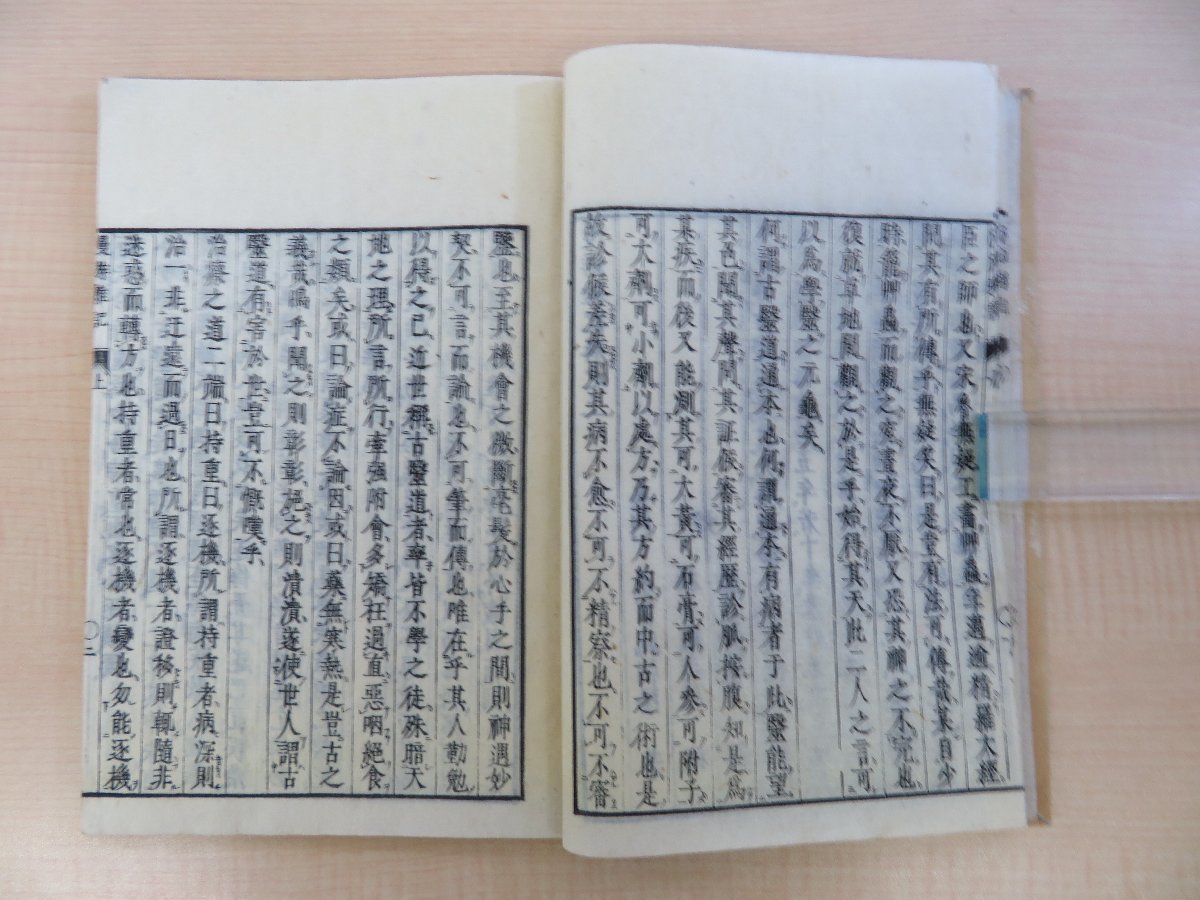 臣之師也又宋曾無疑工畫艸蟲年邁逾精羅大經
問其有所傳乎無疑笑曰是豈有法可傳哉某自少
時籠艸蟲而觀之窮晝夜不厭又恐其神之不完也
復就草地間觀之於是乎始得其天此二人之言可
以為學毉之元龜矣
何謂古毉道道本也何謂道本有病者于此毉能望
其色聞其聲問其証候審其經歷診脉按腹知是為
某疾而後又能測其可大黃可石膏可人參可附子
可大劑可小劑以處方乃其方約而中古之術也是
故診候差失則其病不愈不可不精察也不可不審
毉也至其機會之微斷毫髮於心手之間則神遇妙
契不可言而論也不可筆而傳也唯在乎其人勤勉
以得之已近世稱古毉道者率皆不學之徒殊暗天
地之理所言所行牽強附會多矯枉過直惡咽絕食
之類矣或曰論症不論因或曰藥無寒熱是豈古之
義哉嗚乎聞之則彰彰挹之則潰潰遂使世人謂古
毉道有害於世豈可不慨嘆乎
治療之道二端曰持重曰逐機所謂持重者病深則
治一非迂遠而過日也所謂逐機者證移則輒隨非
迷惑而轉方也持重者常也逐機者變也匆能逐機
漫遊雜記 上 〇二